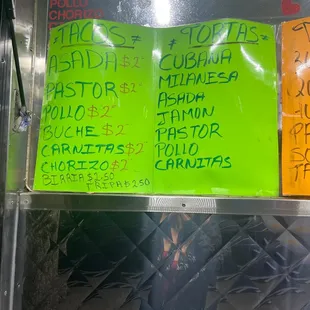 POLLO
CHORIZO
TACOS
ASADA $2
PASTOR $2
POLLO $2
BUCHE $2
CARNITAS $2
CHORIZO $2
BIRRIA $2.50
TRIPA $2.50
TORTAS
CUBANA
MILANESA
ASADA
JAMON
PASTOR
POLLO
CARNITAS